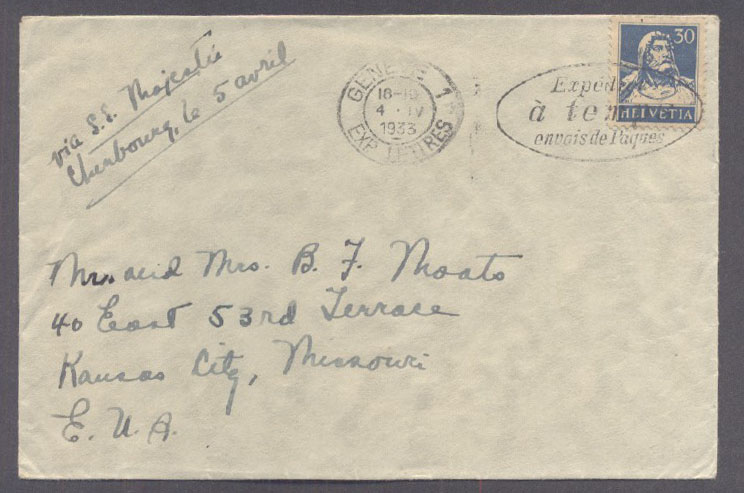 via S.S. Majestic
Cherbourg, le 5 avril
GENÈVE 1
18-19
4·IV
1933
EXP. LETTRES
Expédiez
à temps
envois de Pâques
30
HELVETIA
Mr. and Mrs. B. F. Moats
40 East 53rd Terrace
Kansas City, Missouri
E. U. A.